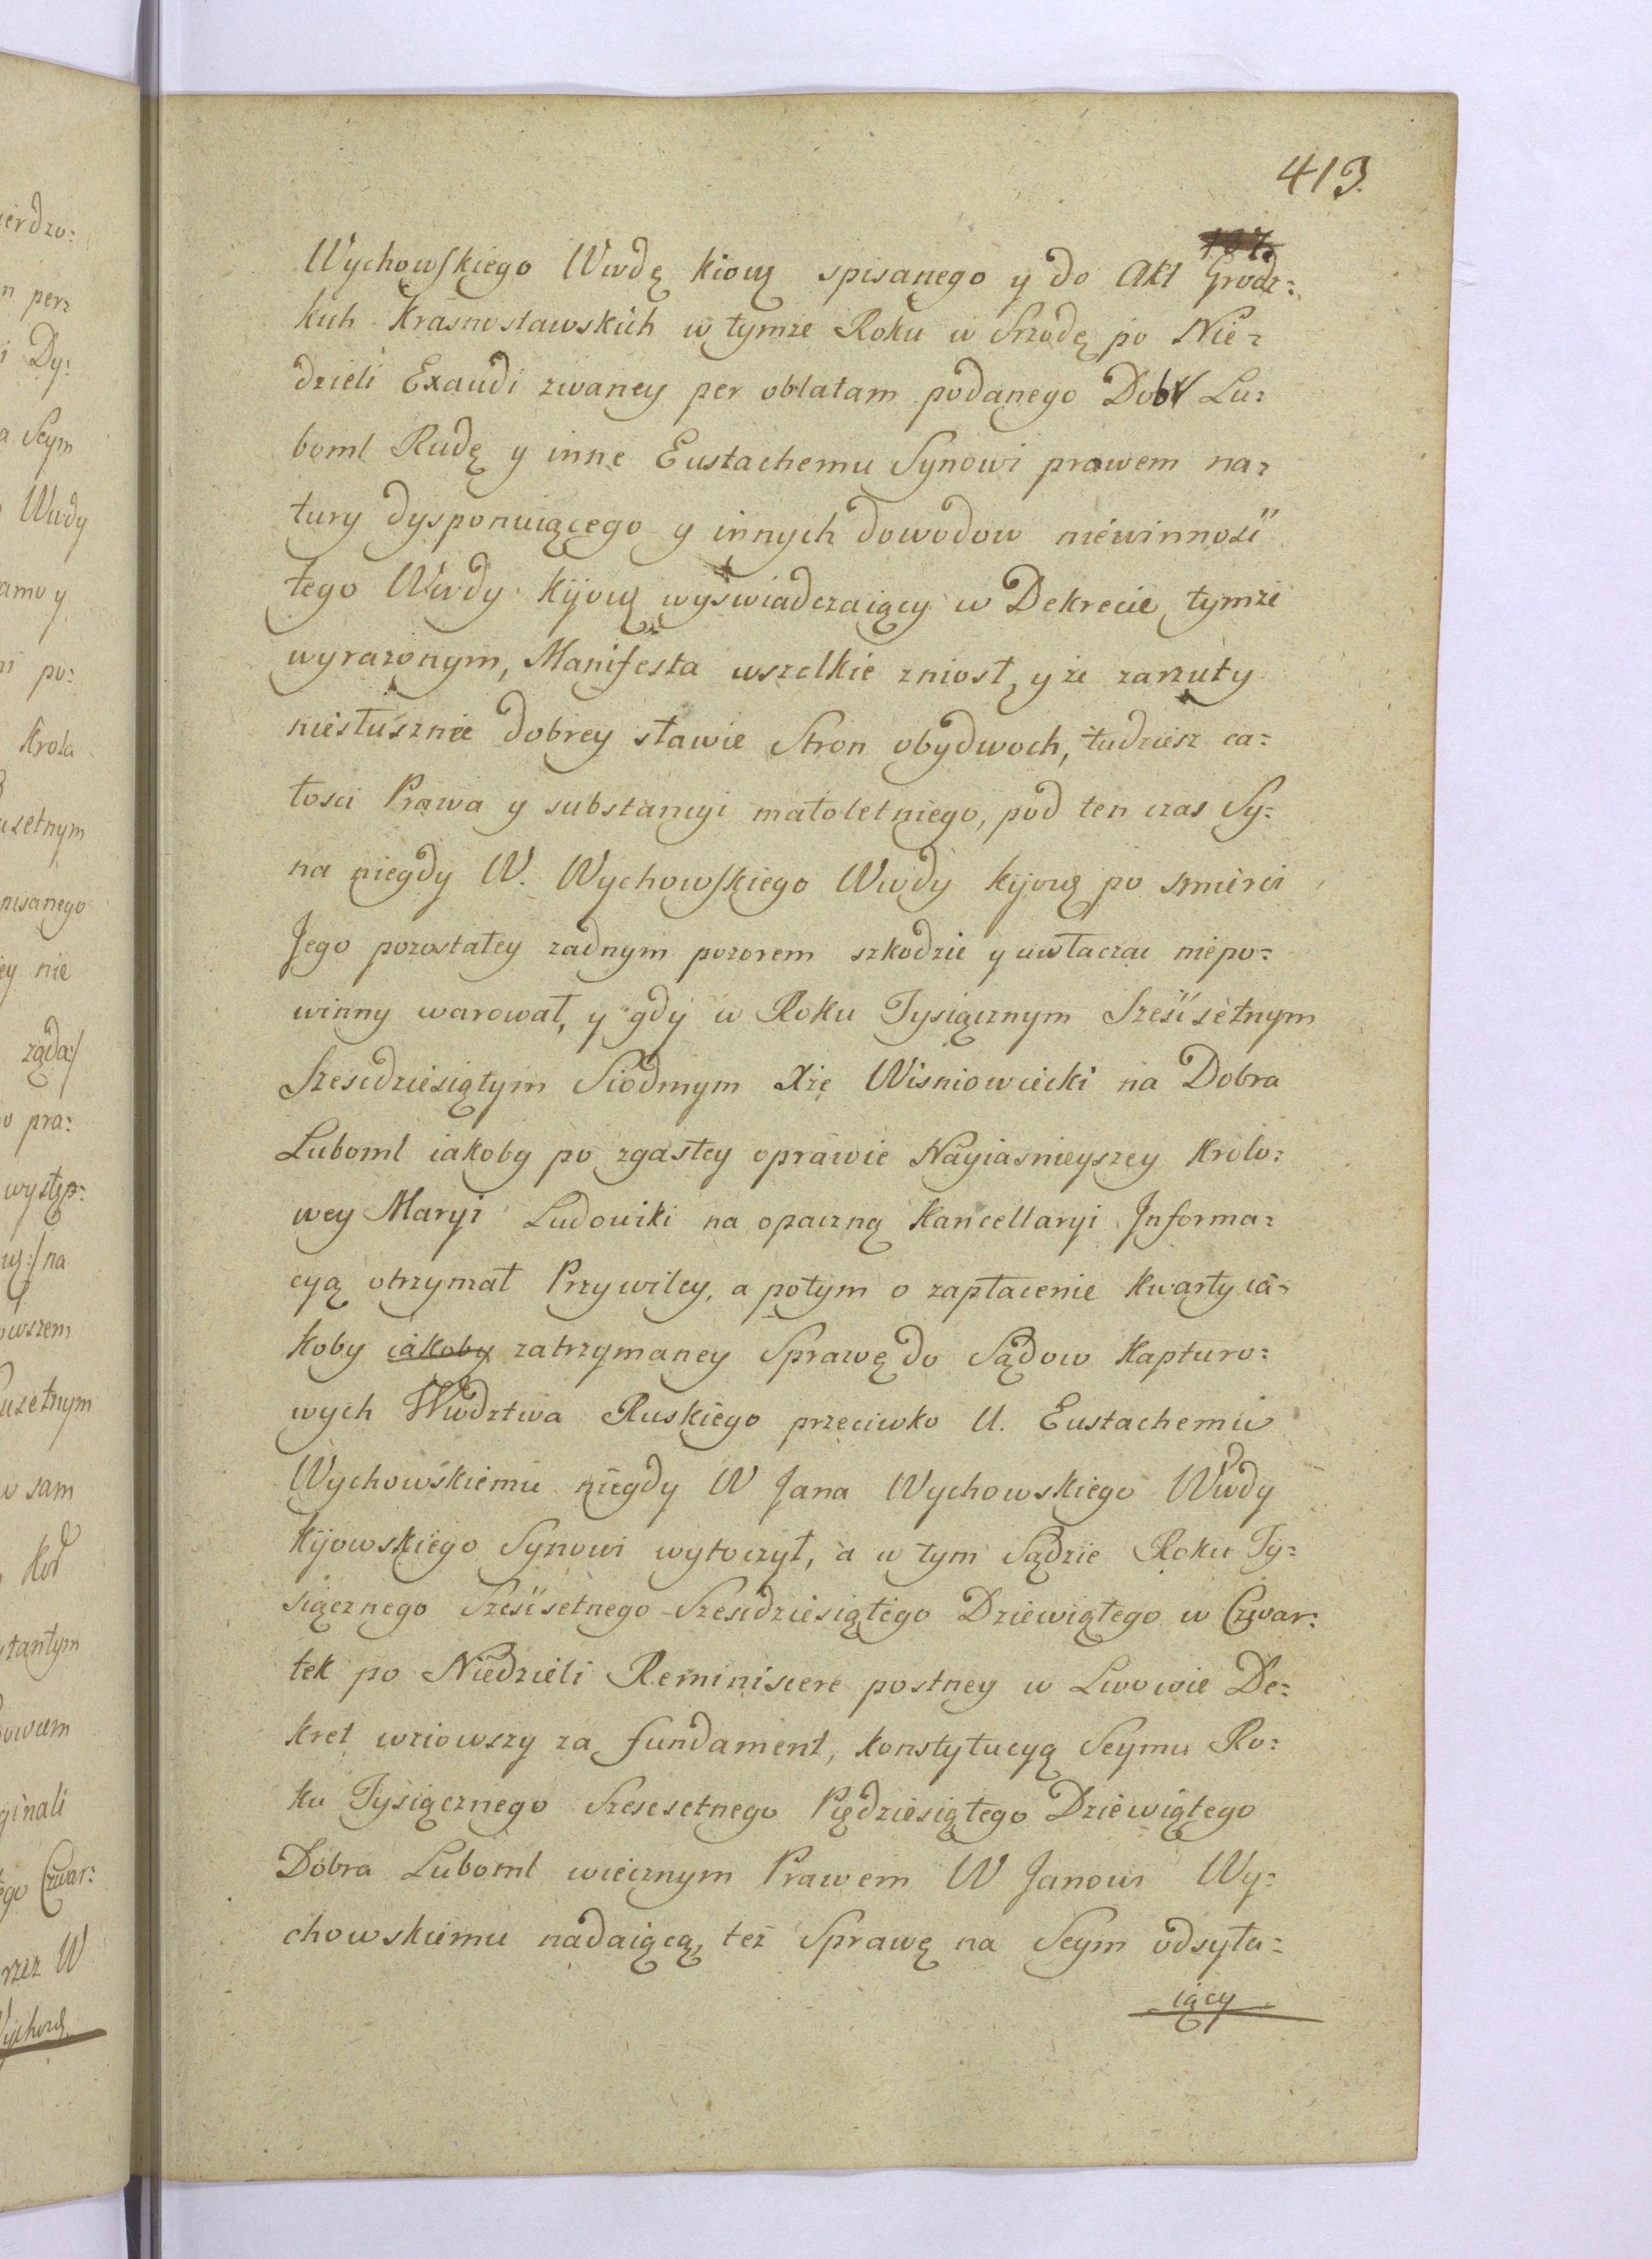 413.
Wychowskiego Wwdę kiowę spisanego y do Akt Grodz:
kich Krasnostawskich w tymże Roku w Srzodę po Nie:
dzieli Exaudi zwaney per oblatam podanego Dobr Lu:
boml Rudę y inne Eustachemu Synowi prawem na:
tury dysponuiącego y innych dowodow niewinnosci
tego Wwdy kijowę wyswiadczaiący w Dekrecie tymże
wyrazonym, Manifesta wszelkie zniosł, y że zarzuty
niesłusznie dobrey sławie Stron obydwoch, tudziesz ca:
łosci Prawa y substancyi małoletniego, pod ten czas Sy:
na niegdy W. Wychowskiego Wwdy kijowę po smierci
Jego pozostałey zadnym pozorem szkodzic y uwłaczac niepo:
winny warował, y gdy w Roku Tysiącznym Szescsetnym
Szescdziesiątym Siodmym Xże Wisniowiecki na Dobra
Luboml iakoby po zgasłey oprawie Nayiasnieyszey Krolo:
wey Maryi Ludowiki na opaczną Kancellaryi Informa:
cyą otrzymał Przywiley, a potym o zapłacenie kwarty ia:
koby iakoby zatrzymaney Sprawę do Sądow Kapturo:
wych Wwdztwa Ruskiego przeciwko U. Eustachemu
Wychowskiemu niegdy W Jana Wychowskiego Wwdy
kijowskiego Synowi wytoczył, a w tym Sądzie Roku Ty:
siącznego Szescsetnego Szescdziesiątego Dziewiątego w Czwar:
tek po Niedzieli Reminiscere postney w Lwowie De:
kret wziowszy za fundament, konstytucyą Seymu Ro:
ku Tysiącznego Szescsetnego Piędziesiątego Dziewiątego
Dobra Luboml wiecznym Prawem W Janowi Wy:
chowskiemu nadaiącą, też Sprawę na Seym odsyła:
iący